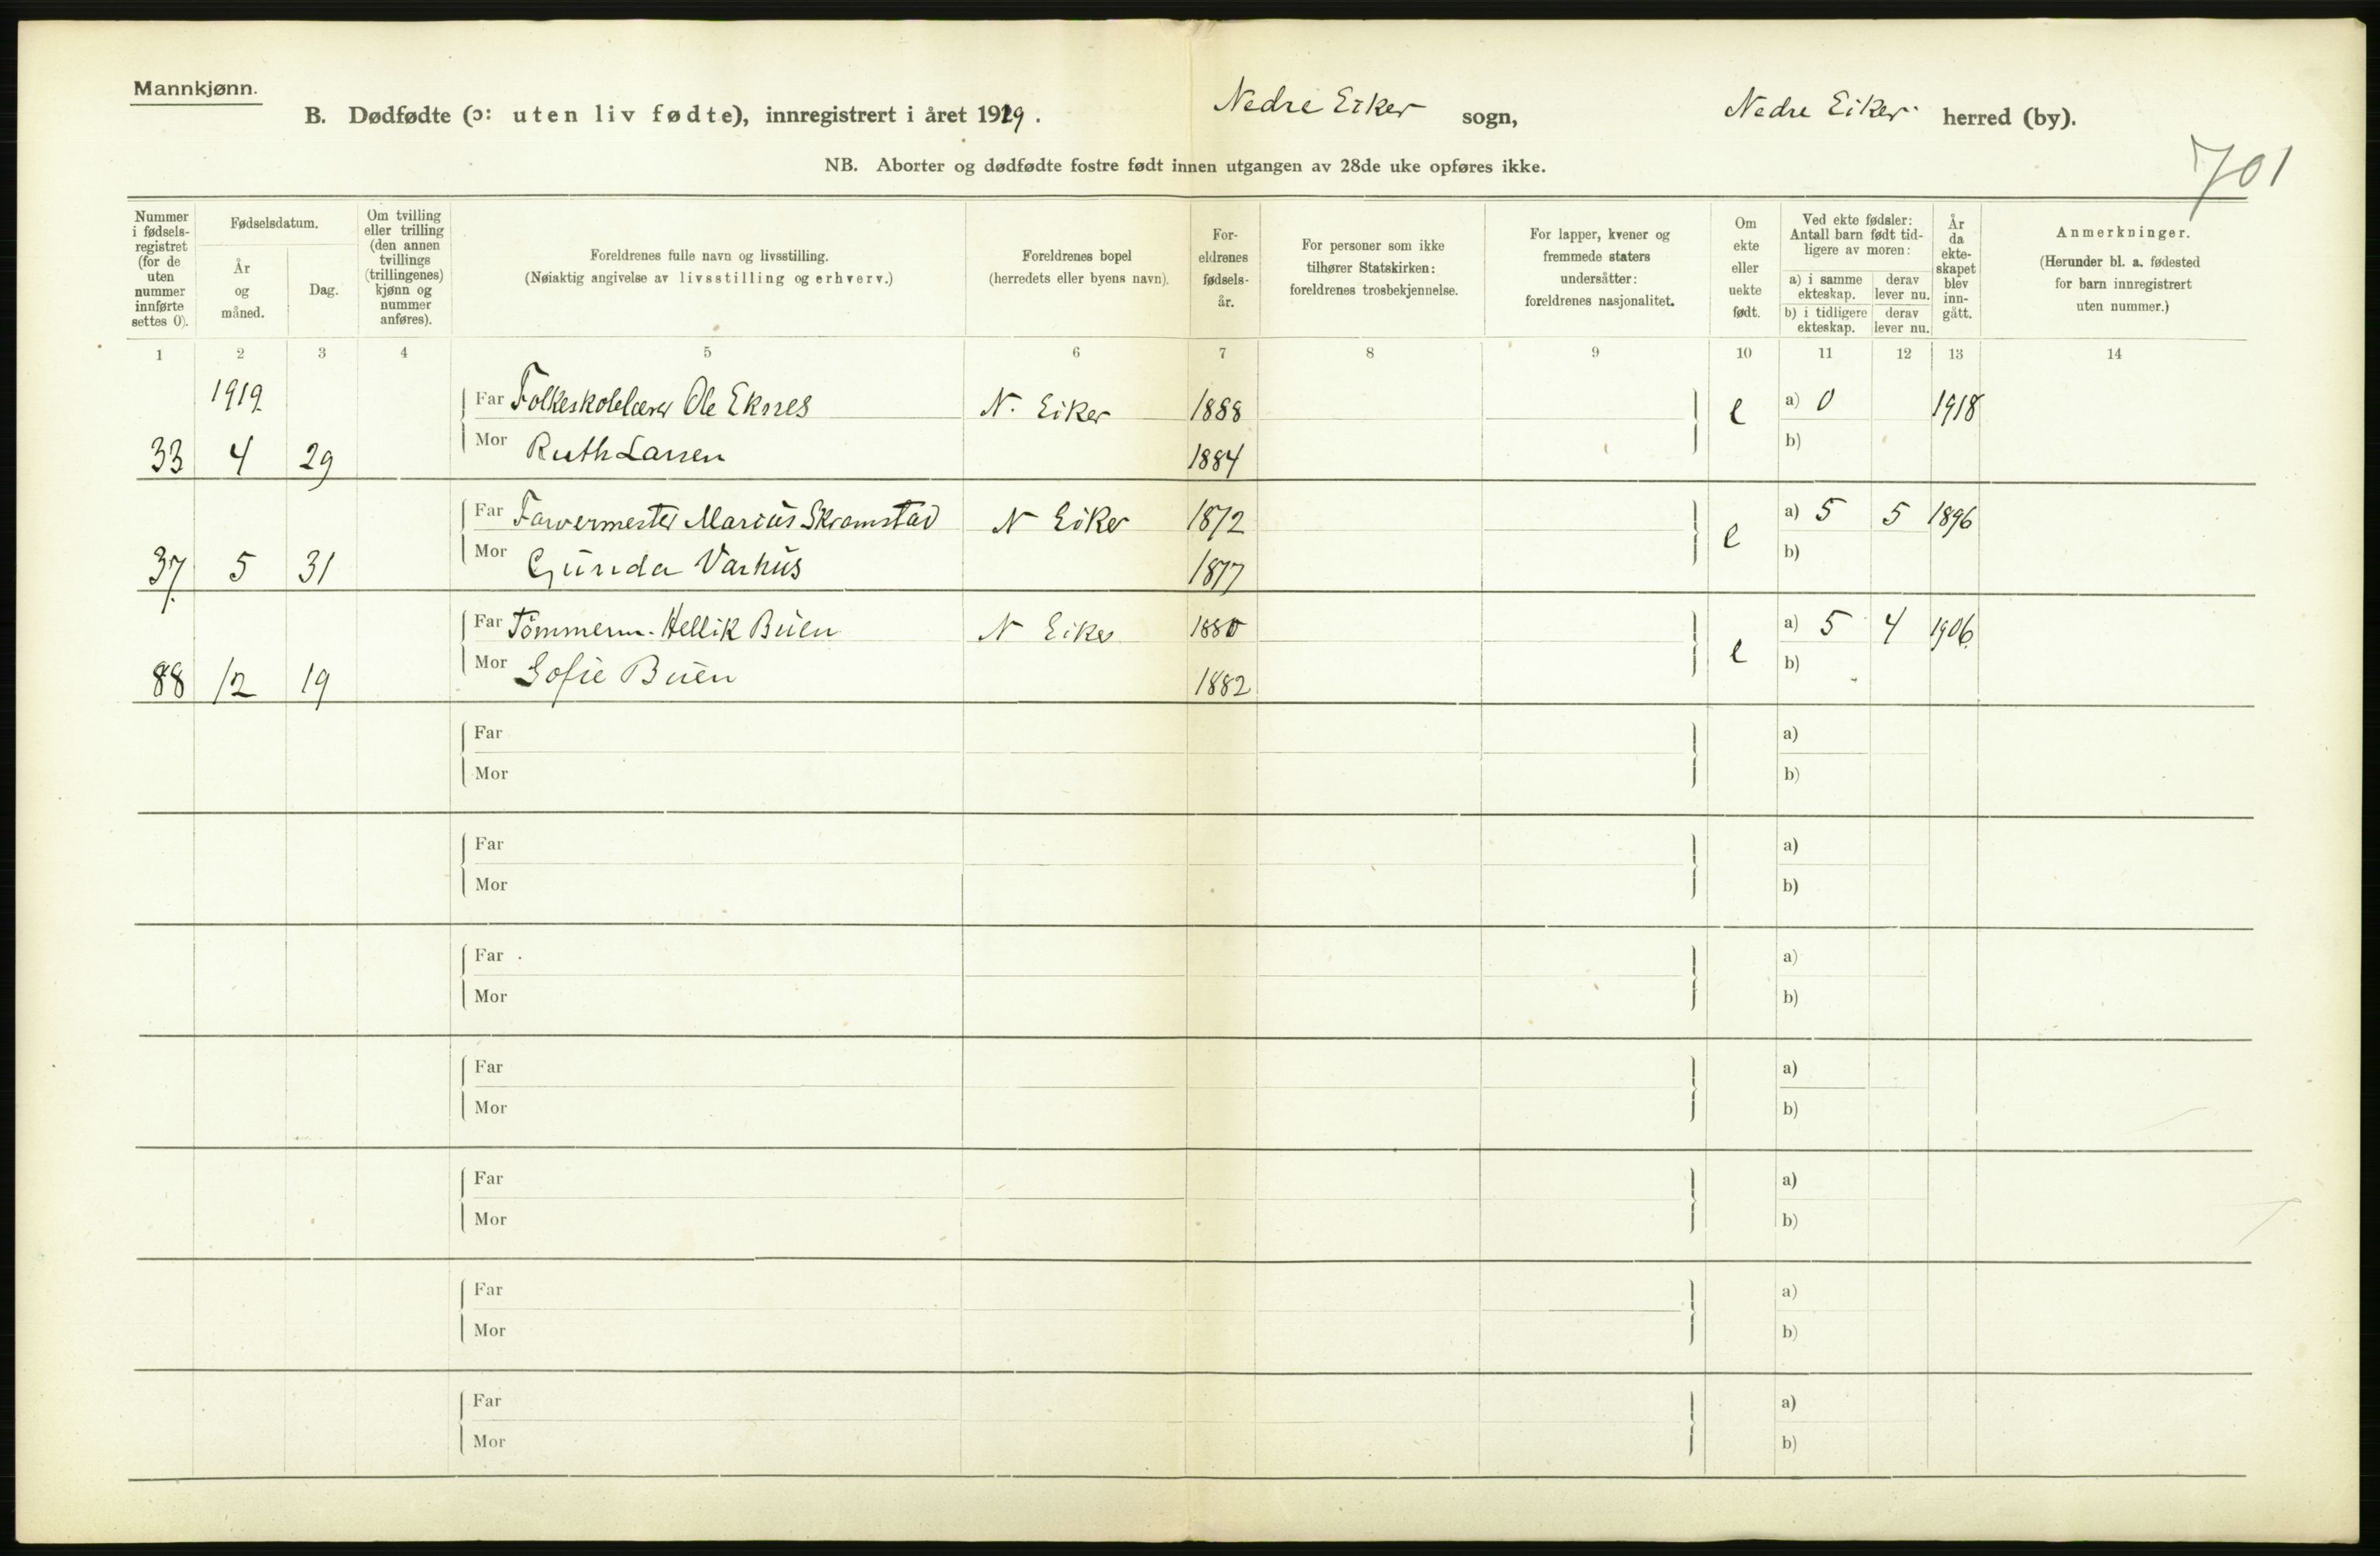 Mannkjønn.
B. Dødfødte (ɔ: uten liv fødte), innregistrert i året 1919. Nedre Eiker sogn, Nedre Eiker herred (by).
NB. Aborter og dødfødte fostre født innen utgangen av 28de uke opføres ikke.
701
Nummer i fødsels-registret (for de uten nummer innførte settes 0).
Fødselsdatum.
År og måned.
Dag.
Om tvilling eller trilling (den annen tvillings (trillingenes) kjønn og nummer anføres).
Foreldrenes fulle navn og livsstilling.
(Nøiaktig angivelse av livsstilling og erhverv.)
Foreldrenes bopel
(herredets eller byens navn).
For-eldrenes fødsels-år.
For personer som ikke tilhører Statskirken: foreldrenes trosbekjennelse.
For lapper, kvener og fremmede staters undersåtter: foreldrenes nasjonalitet.
Om ekte eller uekte født.
Ved ekte fødsler: Antall barn født tid-ligere av moren:
a) i samme ekteskap. derav lever nu.
b) i tidligere ekteskap. derav lever nu.
År da ekte-skapet blev inn-gått.
Anmerkninger.
(Herunder bl. a. fødested for barn innregistrert uten nummer.)
1 2 3 4 5 6 7 8 9 10 11 12 13 14
1919 Far Folkeskolelærer Ole Eknes N. Eiker 1888 e a) 0 1918
33 4 29 Mor Ruth Larsen 1884 b)
Far Farvermester Marius Skramstad N Eiker 1872 e a) 5 5 1896
37. 5 31 Mor Gunda Varhus 1877 b)
Far Tömmerm. Hellik Buen N Eiker 1880 e a) 5 4 1906
88 12 19 Mor Sofie Buen 1882 b)
Far a)
Mor b)
Far a)
Mor b)
Far a)
Mor b)
Far a)
Mor b)
Far a)
Mor b)
Far a)
Mor b)
Far a)
Mor b)